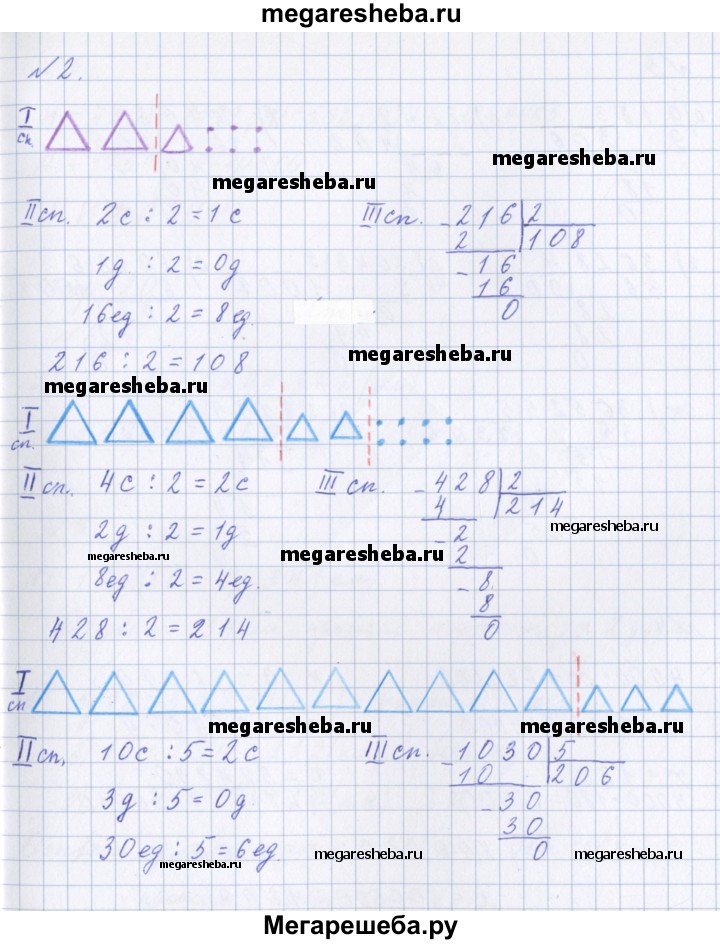 megaresheba.ru
№2.
I сп.
megaresheba.ru
megaresheba.ru
II сп. 2с : 2 = 1с
1д : 2 = 0д
16ед : 2 = 8ед.
216 : 2 = 108
III сп. - 216 | 2
2 108
- 16
16
0
megaresheba.ru
megaresheba.ru
I сп.
II сп. 4с : 2 = 2с
2д : 2 = 1д
8ед : 2 = 4ед.
428 : 2 = 214
III сп. - 428 | 2
4 214
- 2
2
- 8
8
0
megaresheba.ru
megaresheba.ru
megaresheba.ru
I сп
megaresheba.ru
megaresheba.ru
II сп. 10с : 5 = 2с
3д : 5 = 0д
30ед : 5 = 6ед
III сп. - 1030 | 5
10 206
- 30
30
0
megaresheba.ru
megaresheba.ru
megaresheba.ru
Мегарешеба.ру